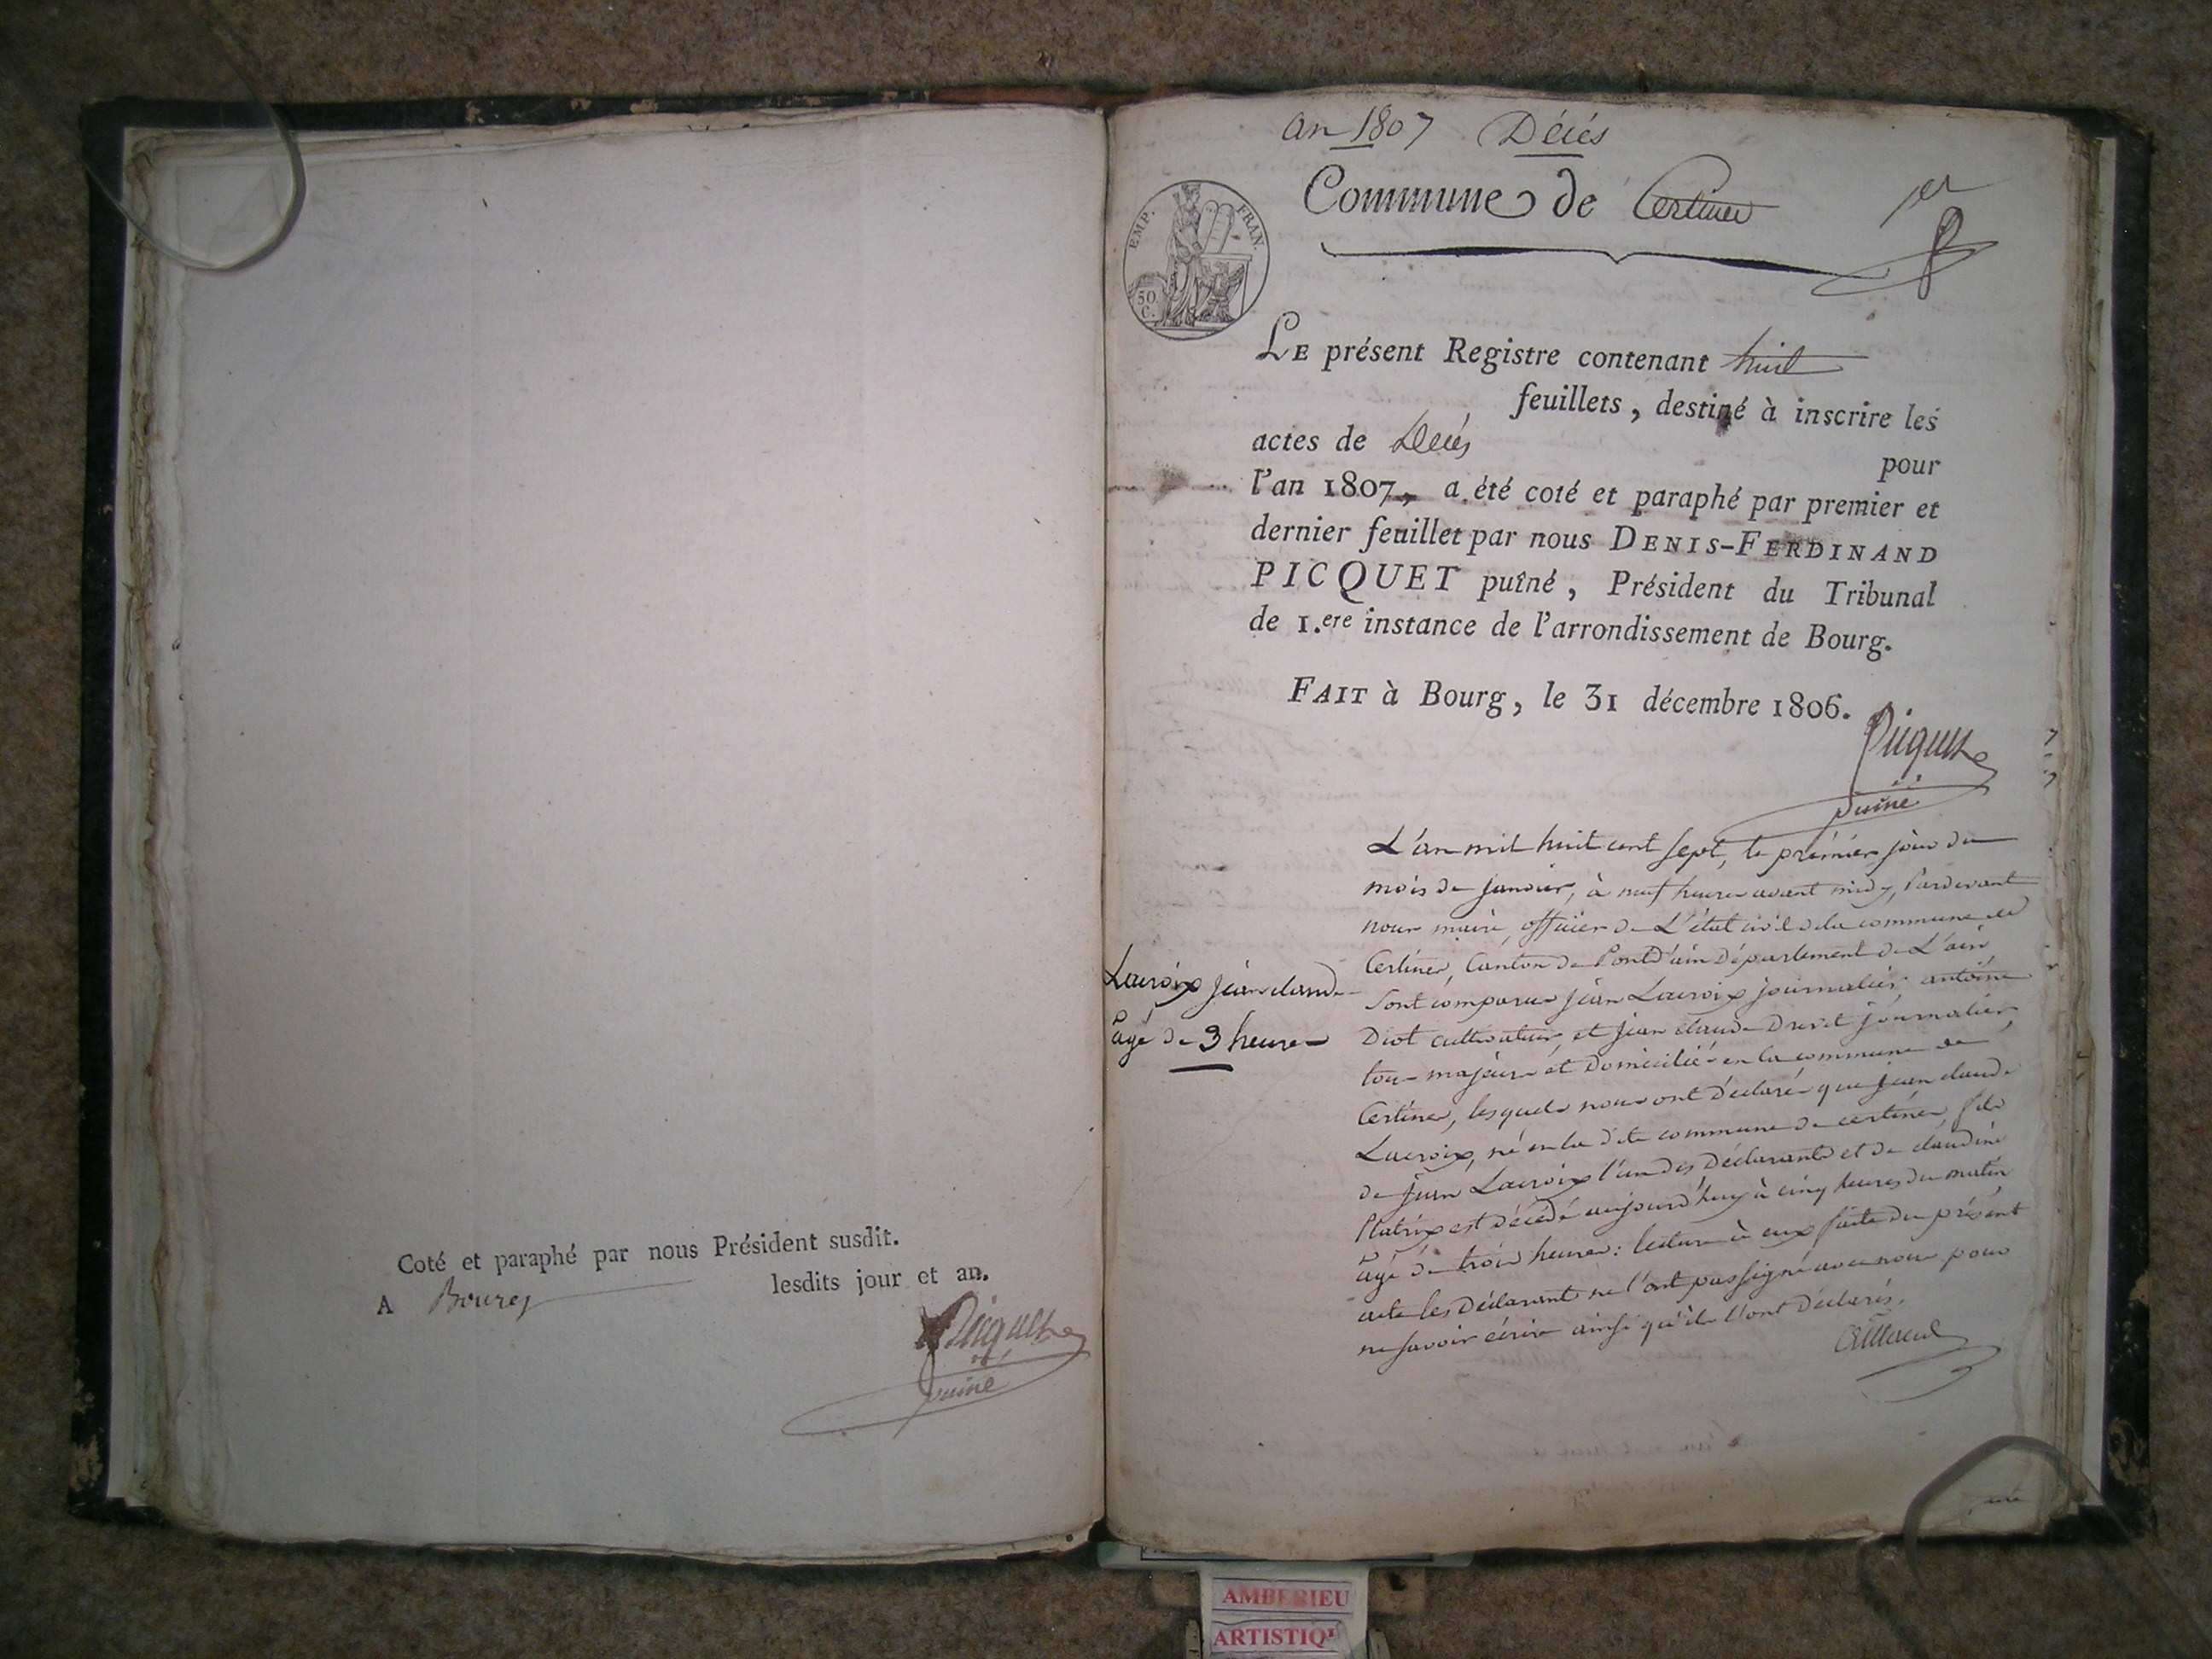 Coté et paraphé par nous Président susdit.
A Bourg lesdits jour et an.
Picquet
puîné
an 1807 Décés
Commune de Certines
1er
EMP. FRAN.
50 C.
LE présent Registre contenant huit
feuillets, destiné à inscrire les
actes de Décés
pour
l'an 1807, a été coté et paraphé par premier et
dernier feuillet par nous DENIS-FERDINAND
PICQUET puîné, Président du Tribunal
de 1.ere instance de l'arrondissement de Bourg.
FAIT à Bourg, le 31 décembre 1806.
Picquet
puîné
Lacroix jean claude
agé de 3 heures
L'an mil huit cent sept, le prémier jour du
mois de janvier, à neuf heures avant midy, Pardevant
nous maire, officier de L'état civil de la commune de
Certines, Canton de Pont d'ain Département de L'ain
sont comparus jean Lacroix journalier, antoine
Diot cultivateur, et jean claude Drevet journalier,
tous majeurs et Domiciliés en la commune de
Certines, lesquels nous ont Déclaré que jean claude
Lacroix, né en la dite commune de certines, fils
de jean Lacroix l'un des Déclarants et de claudine
Platrix est décédé aujourd'huy à cinq heures du matin
agé de trois heures: lecture à eux faite du présent
acte les Déclarants ne l'ont pas signé avec nous pour
ne savoir écrire ainsi qu'ils l'ont Déclarés.
AMBERIEU
ARTISTIQU